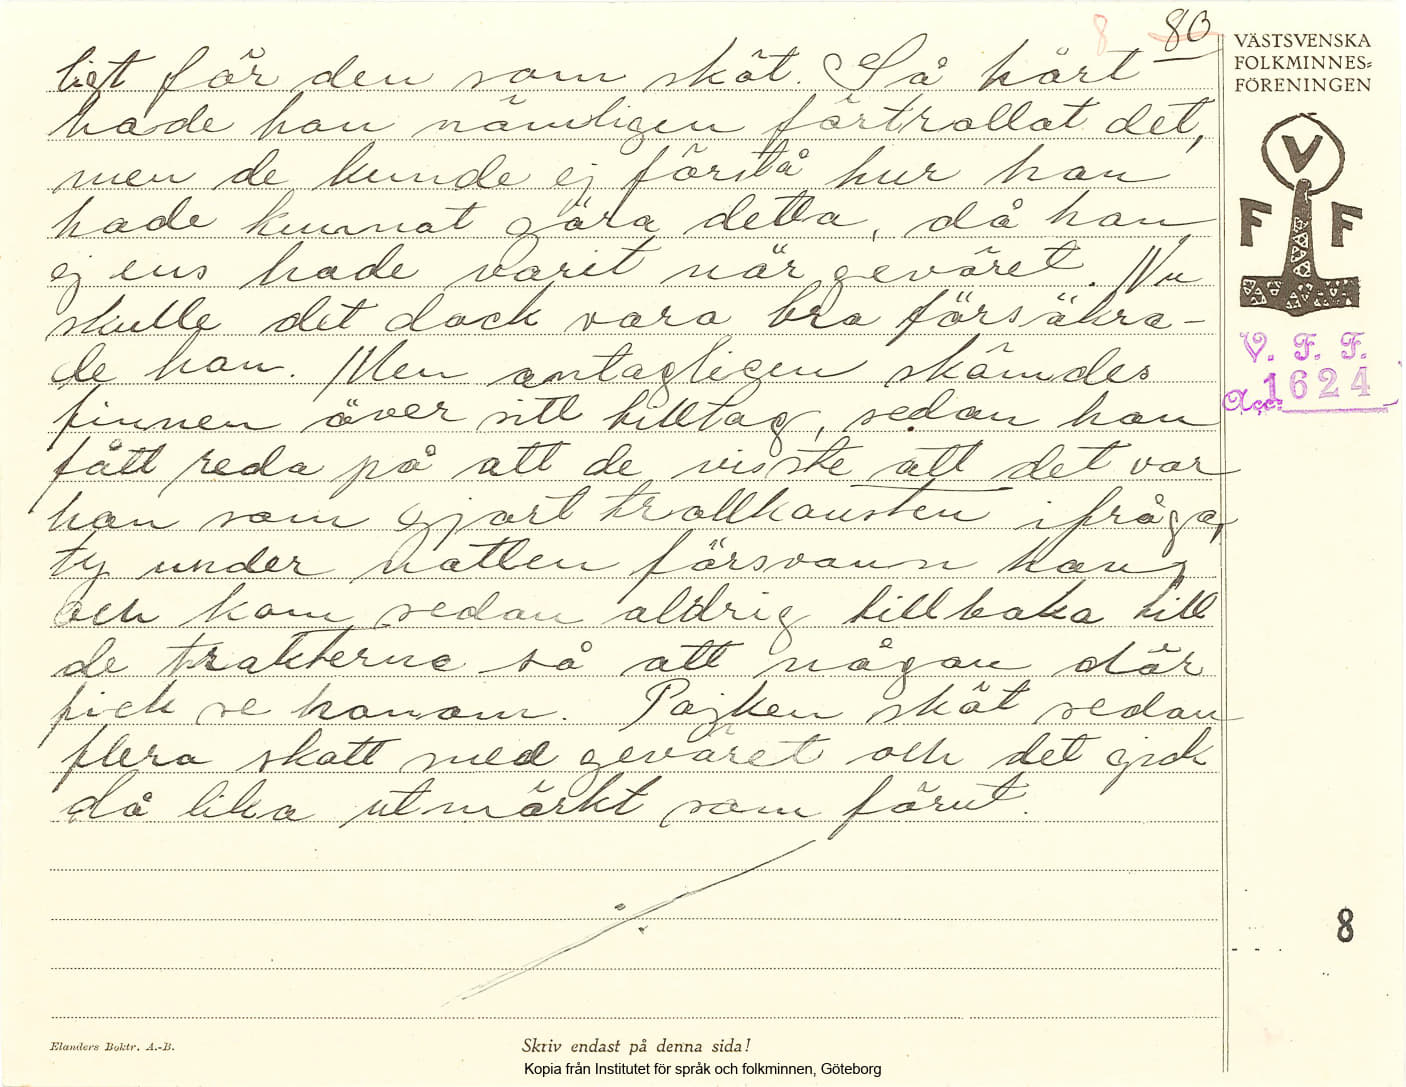 8 80
ligt för den som sköt. Så hårt
hade han nämligen förtrollat det,
men de kunde ej förstå hur han
hade kunnat göra detta, då han
ej ens hade varit när geväret. Nu
skulle det dock vara bra försäkra-
de han. Men antagligen skämdes
finnen över sitt tilltag, sedan han
fått reda på att de visste att det var
han som gjort trollkonsten ifråga,
ty under natten försvann han
och kom sedan aldrig tillbaka till
de trakterna så att någon där
fick se honom. Pojken sköt sedan
flera skott med geväret och det gick
då lika utmärkt som förut.
VÄSTSVENSKA
FOLKMINNES-
FÖRENINGEN
V
F F
V. F. F.
Acc. 1624
8
Elanders Boktr. A.-B.
Skriv endast på denna sida!
Kopia från Institutet för språk och folkminnen, Göteborg